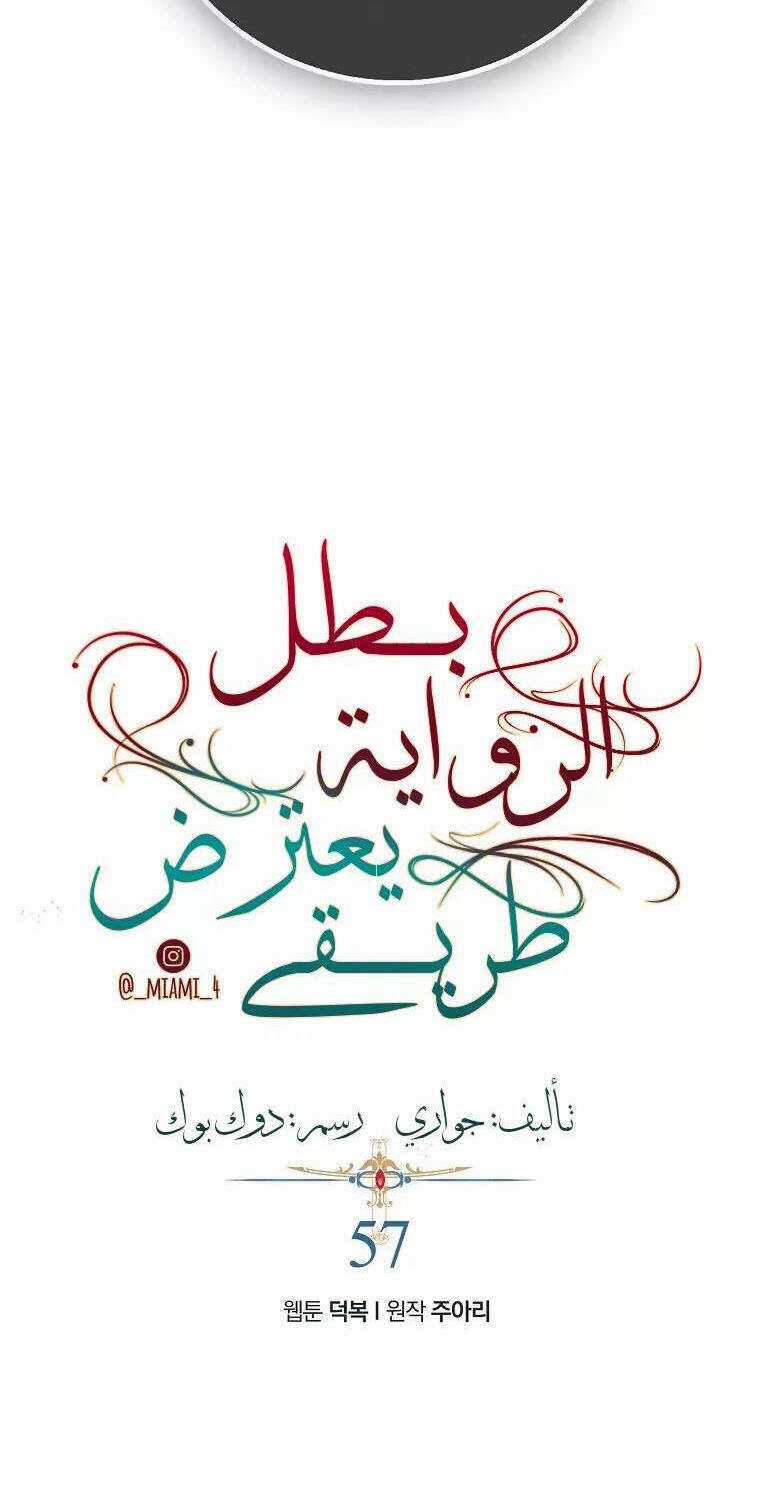 بطل
الرواية
يعترض
طريقي
@_MIAMI_4
تأليف: جواري رسم: دوك بوك
57
웹툰 덕복 | 원작 주아리